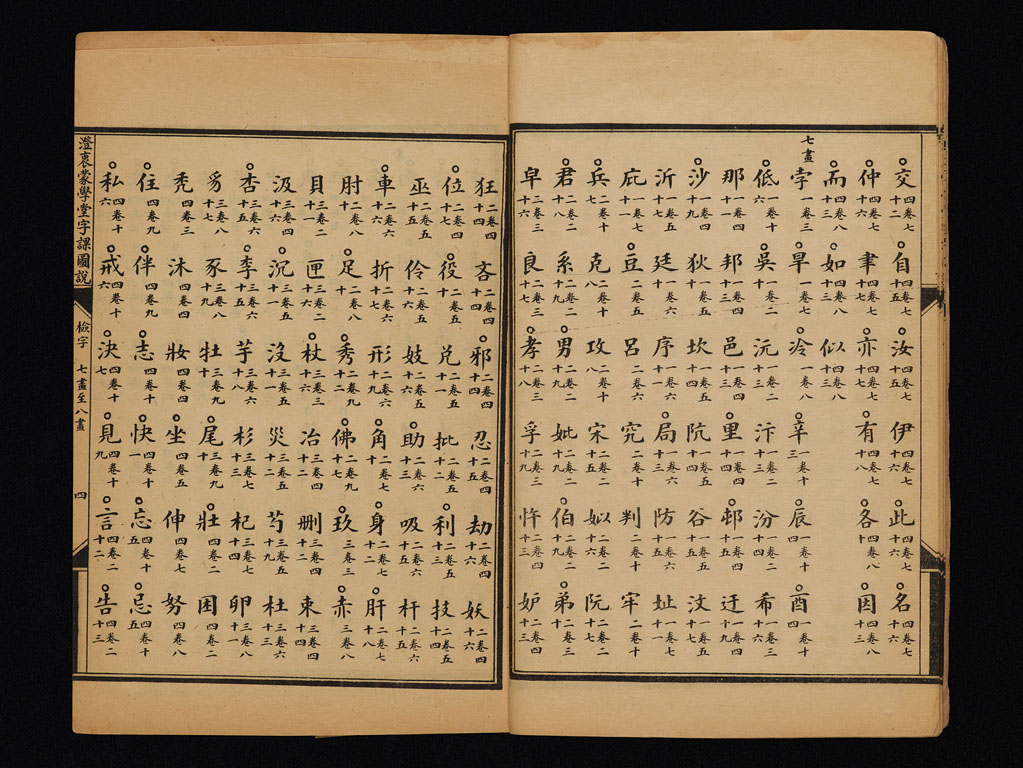 交 四卷七十二 自 四卷七十五 汝 四卷七十五 伊 四卷七十六 此 四卷七十六 名 四卷七十六
仲 四卷七十六 聿 四卷七十七 亦 四卷七十七 有 四卷七十八 各 四卷八十 因 四卷八
而 四卷八 如 四卷八十三 似 四卷八十三
七畫
孛 一卷三 旱 一卷七 冷 一卷九 辛 一卷十三 辰 一卷十四 酉 一卷十四
低 一卷十六 吳 一卷二十 沅 一卷二十三 汴 一卷二十三 汾 一卷二十四 希 一卷三十六
那 一卷四十一 邦 一卷四十一 邑 一卷四十三 里 一卷四十四 邨 一卷四十四 迂 一卷四十九
沙 一卷四十九 狄 一卷五十 坎 一卷五十四 阬 一卷五十四 谷 一卷五十五 汶 一卷五十七
沂 一卷五十七 廷 一卷六十 序 一卷六十一 局 一卷六十三 防 一卷六十五 址 一卷七十一
庇 一卷七十一 豆 二卷五 呂 二卷六 究 二卷十 判 二卷十 牢 二卷十
兵 二卷十七 克 二卷十八 攻 二卷十八 宋 二卷二十五 姒 二卷二十六 阮 二卷二十七
君 二卷二十八 系 二卷二十八 男 二卷二十九 妣 二卷二十九 伯 二卷二十九 弟 二卷三十
皁 二卷三十六 良 二卷三十七 孝 二卷三十八 孚 二卷三十九 忤 二卷四十三 妒 二卷四十三
狂 二卷四十四 吝 二卷四十四 邪 二卷四十四 忍 二卷四十五 劫 二卷四十六 妖 二卷四十六
位 二卷四十七 役 二卷五十 兌 二卷五十一 批 二卷五十二 利 二卷五十三 技 二卷五十四
巫 二卷五十五 伶 二卷五 妓 二卷六 助 二卷六 吸 二卷六十五 杆 二卷六十五
車 二卷六十六 折 二卷六十七 形 二卷六十九 角 二卷七十 身 二卷七十二 肝 二卷七十八
肘 二卷八十 足 二卷八十 秀 二卷九十二 佛 二卷九十七 玖 三卷三 赤 三卷八
貝 三卷二十八 匣 三卷三十二 杖 三卷三十六 冶 三卷四十二 删 三卷四十二 束 三卷四十六
汲 三卷四十六 沉 三卷五十一 沒 三卷五十一 災 三卷五十二 芍 三卷五十九 杜 三卷六十三
杏 三卷六十五 李 三卷六十五 芋 三卷六十八 杉 三卷七十三 杞 三卷七十四 卵 三卷八十一
豸 三卷八十七 豕 三卷八十九 牡 三卷九十 尾 三卷九十 壯 四卷二 困 四卷二
禿 四卷三 沐 四卷四 妝 四卷四 坐 四卷五 伸 四卷七 努 四卷八
住 四卷九 伴 四卷九 志 四卷十 快 四卷十一 忘 四卷十五 忌 四卷十五
私 四卷十六 戒 四卷十六 決 四卷十七 見 四卷十九 言 四卷二十二 告 四卷二十三
澄衷蒙學堂字課圖說 檢字 七畫至八畫 四